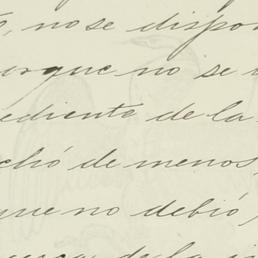 no se dispo
porque no se
ediente de la
chó de menos,
que no debió,
de la